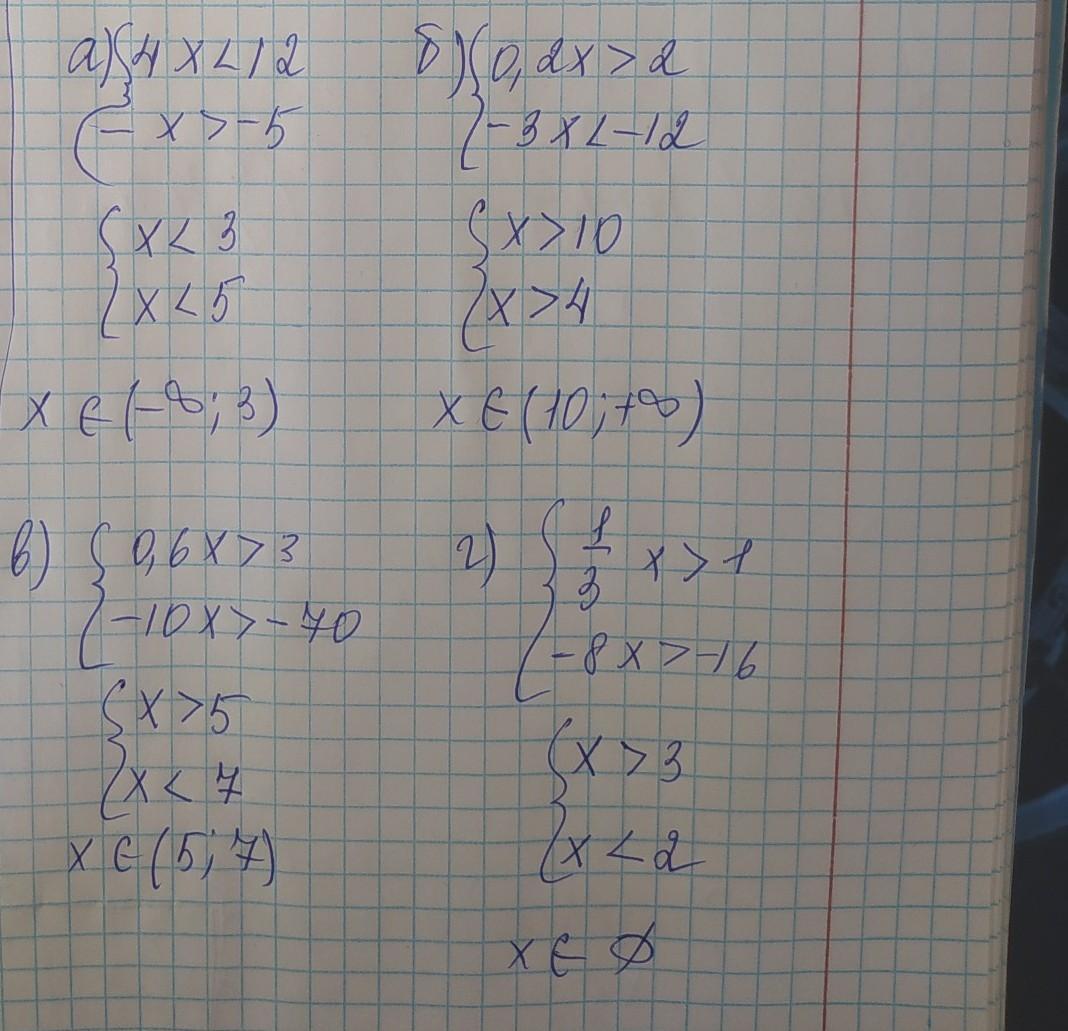 а) { 4x < 12
{ -x > -5
{ x < 3
{ x < 5
x ∈ (-∞; 3)
б) { 0,2x > 2
{ -3x < -12
{ x > 10
{ x > 4
x ∈ (10; +∞)
в) { 0,6x > 3
{ -10x > -70
{ x > 5
{ x < 7
x ∈ (5; 7)
г) { 1/3 x > 1
{ -8x > -16
{ x > 3
{ x < 2
x ∈ ∅